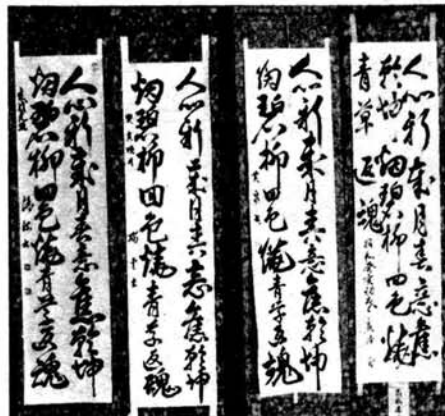 人心新歳月春意舊
乾坤烟碧柳回色燒
青草返魂
人心新歳月春意舊乾坤
烟碧柳回色燒青草返魂
人心新歳月春意舊乾坤
烟碧柳回色燒青草返魂
人心新歳月春意舊乾坤
烟碧柳回色燒青草返魂